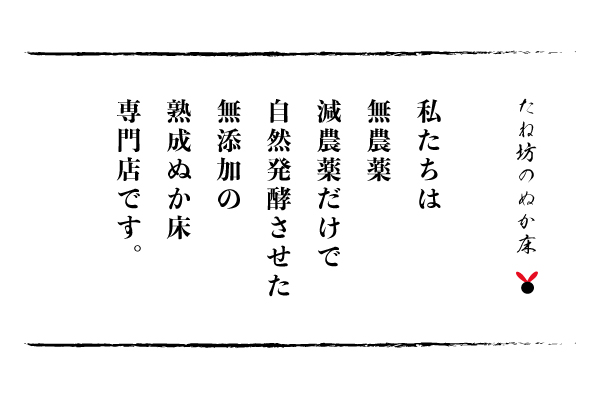 たね坊のぬか床
私たちは
無農薬
減農薬だけで
自然発酵させた
無添加の
熟成ぬか床
専門店です。